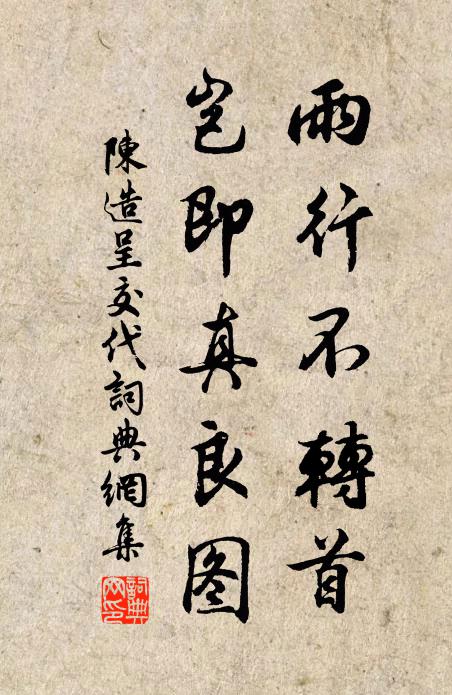 雨行不轉首
豈即真良图
陳造呈交代詞典網集
詞典網印